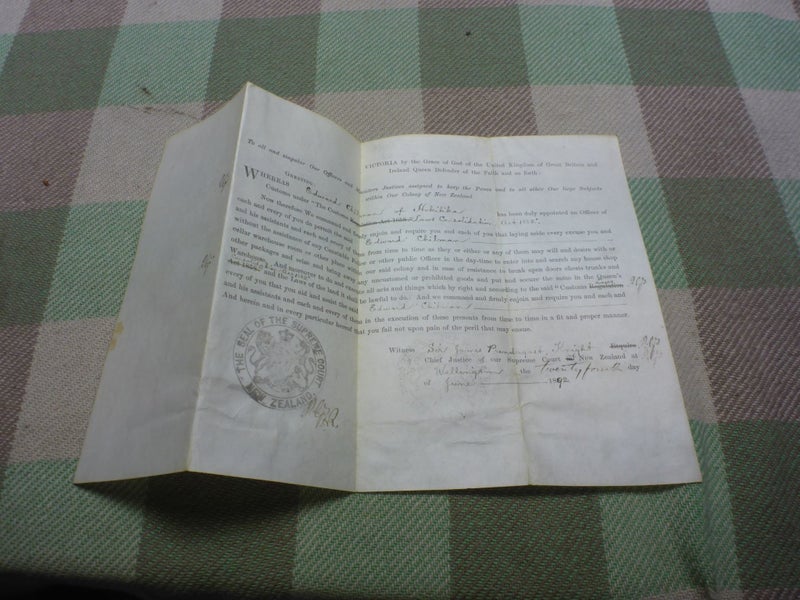 VICTORIA by the Grace of God of the United Kingdom of Great Britain and
Ireland Queen Defender of the Faith and so forth:
To all and singular Our Officers and Ministers Justices assigned to keep the Peace and to all other Our liege Subjects
within Our Colony of New Zealand
GREETING:
WHEREAS Edward Chilman of Hokitika has been duly appointed an Officer of
Customs under "The Customs Regulation Act 1858 Laws Consolidation Act 1882".
Now therefore We command and firmly enjoin and require you and each of you that laying aside every excuse you and
each and every of you do permit the said Edward Chilman
and his assistants and each and every of them from time to time as they or either or any of them may will and desire with or
without the assistance of any Constable or other public Officer in the day-time to enter into and search any house shop
cellar warehouse room or other place within our said colony and in case of resistance to break open doors chests trunks and
other packages and seize and bring away any uncustomed or prohibited goods and put and secure the same in the Queen's
Warehouse. And moreover to do and execute all acts and things which by right and according to the said "Customs Regulation
Act 1858" and the laws of the land it shall be lawful to do. And we command and firmly enjoin and require you and each and
every of you that you aid and assist the said Edward Chilman
and his assistants and each and every of them in the execution of these presents from time to time in a fit and proper manner.
And herein and in every particular hereof that you fail not upon pain of the peril that may ensue.
Witness Sir James Prendergast, Knight Esquire
Chief Justice of our Supreme Court of New Zealand at
Wellington the Twenty fourth day
of June 1892
THE SEAL OF THE SUPREME COURT
NEW ZEALAND